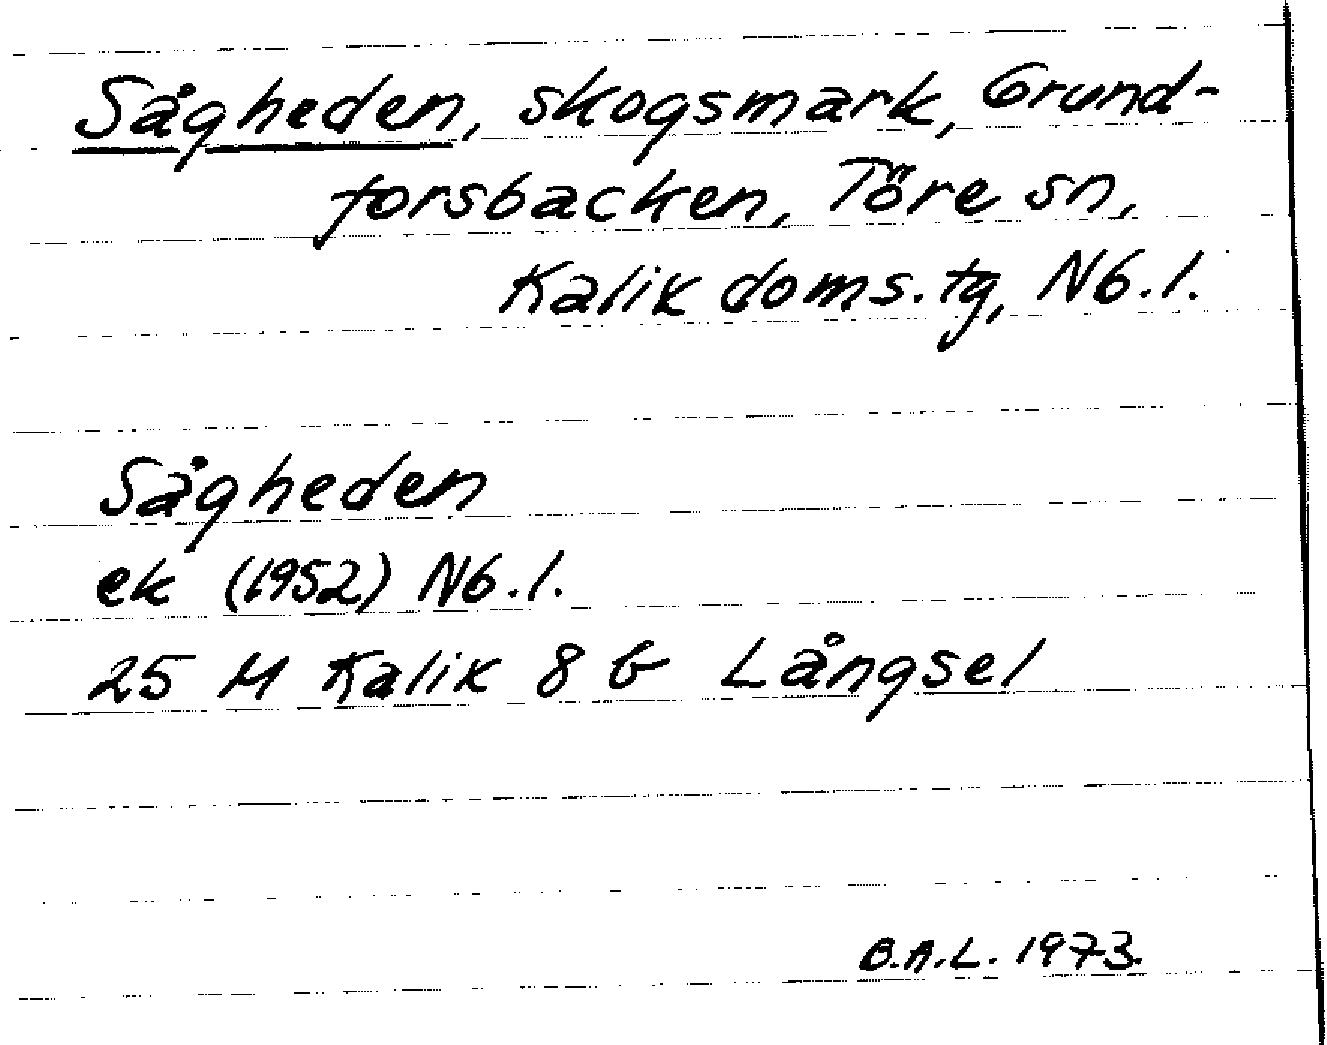 Sågheden, skogsmark, Grund-
forsbacken, Töre sn,
Kalix doms.tg, Nb.l.
Sågheden
ek (1952) Nb.l.
25 M Kalix 8 b Långsel
B.A.L. 1973.